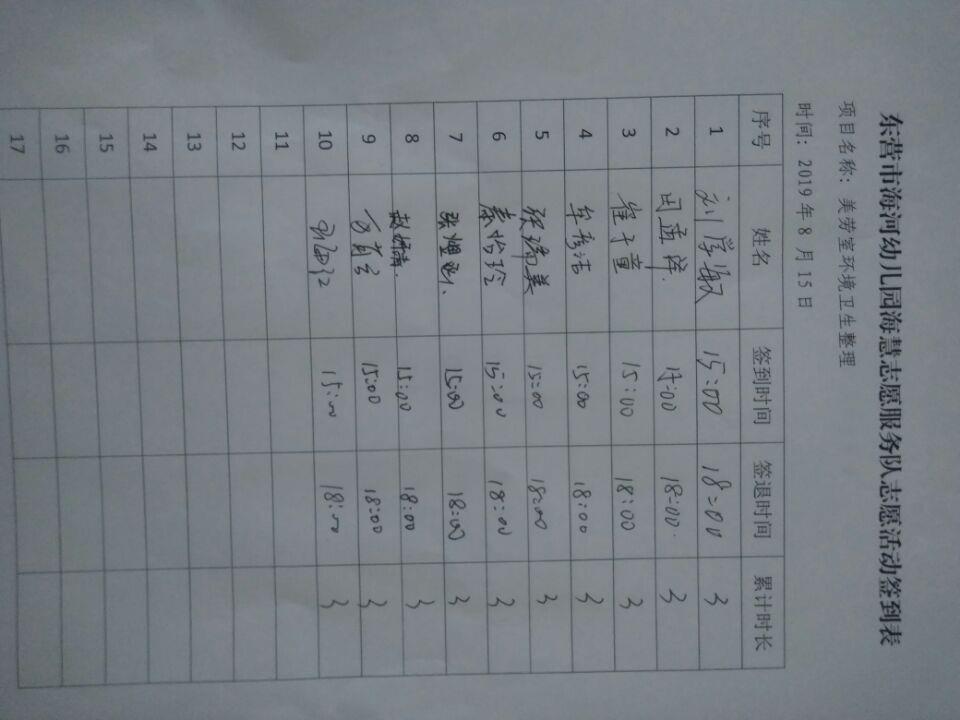 东营市海河幼儿园海慧志愿服务队志愿活动签到表
项目名称：美劳室环境卫生整理
时间：2019年8月15日
序号 姓名 签到时间 签退时间 累计时长
1 刘学敏 15:00 18:00 3
2 18:00 3
3 崔子童 15:00 18:00 3
4 牟秀洁 15:00 18:00 3
5 张瑞美 15:00 18:00 3
6 秦怡玲 15:00 18:00 3
7 15:00 18:00 3
8 15:00 18:00 3
9 15:00 18:00 3
10 15:00 18:00 3
11
12
13
14
15
16
17